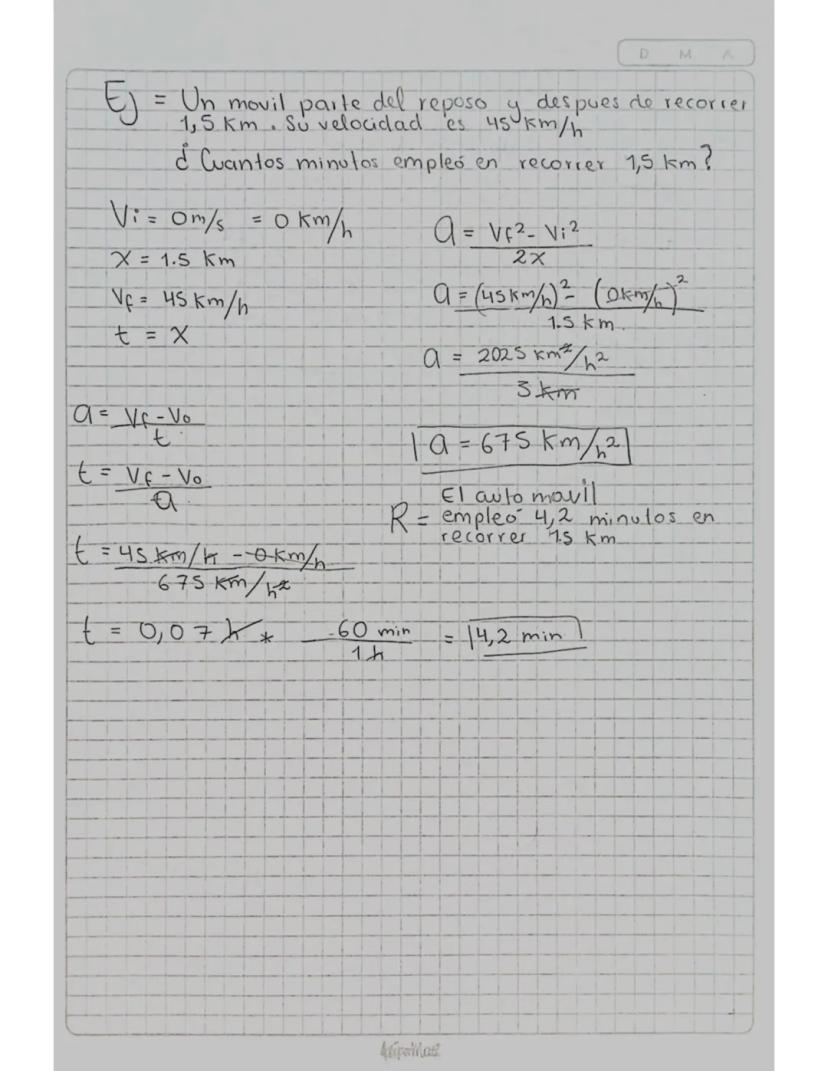 D M A
Ej = Un movil parte del reposo y despues de recorrer
1,5 Km. Su velocidad es 45 Km/h
¿ Cuantos minutos empleó en recorrer 1,5 km?
Vi = 0 m/s = 0 Km/h
X = 1.5 Km
Vf = 45 Km/h
t = X
a = Vf² - Vi²
2X
a = (45 Km/h)² - (0 km/h)²
1.5 km.
a = 2025 km²/h²
3 km
a = 675 Km/h²
a = Vf - Vo
t
t = Vf - Vo
a
t = 45 km/h - 0 km/h
675 km/h²
t = 0,07 h * 60 min = 4,2 min
1 h
El auto movil
R = empleó 4,2 minutos en
recorrer 1.5 Km